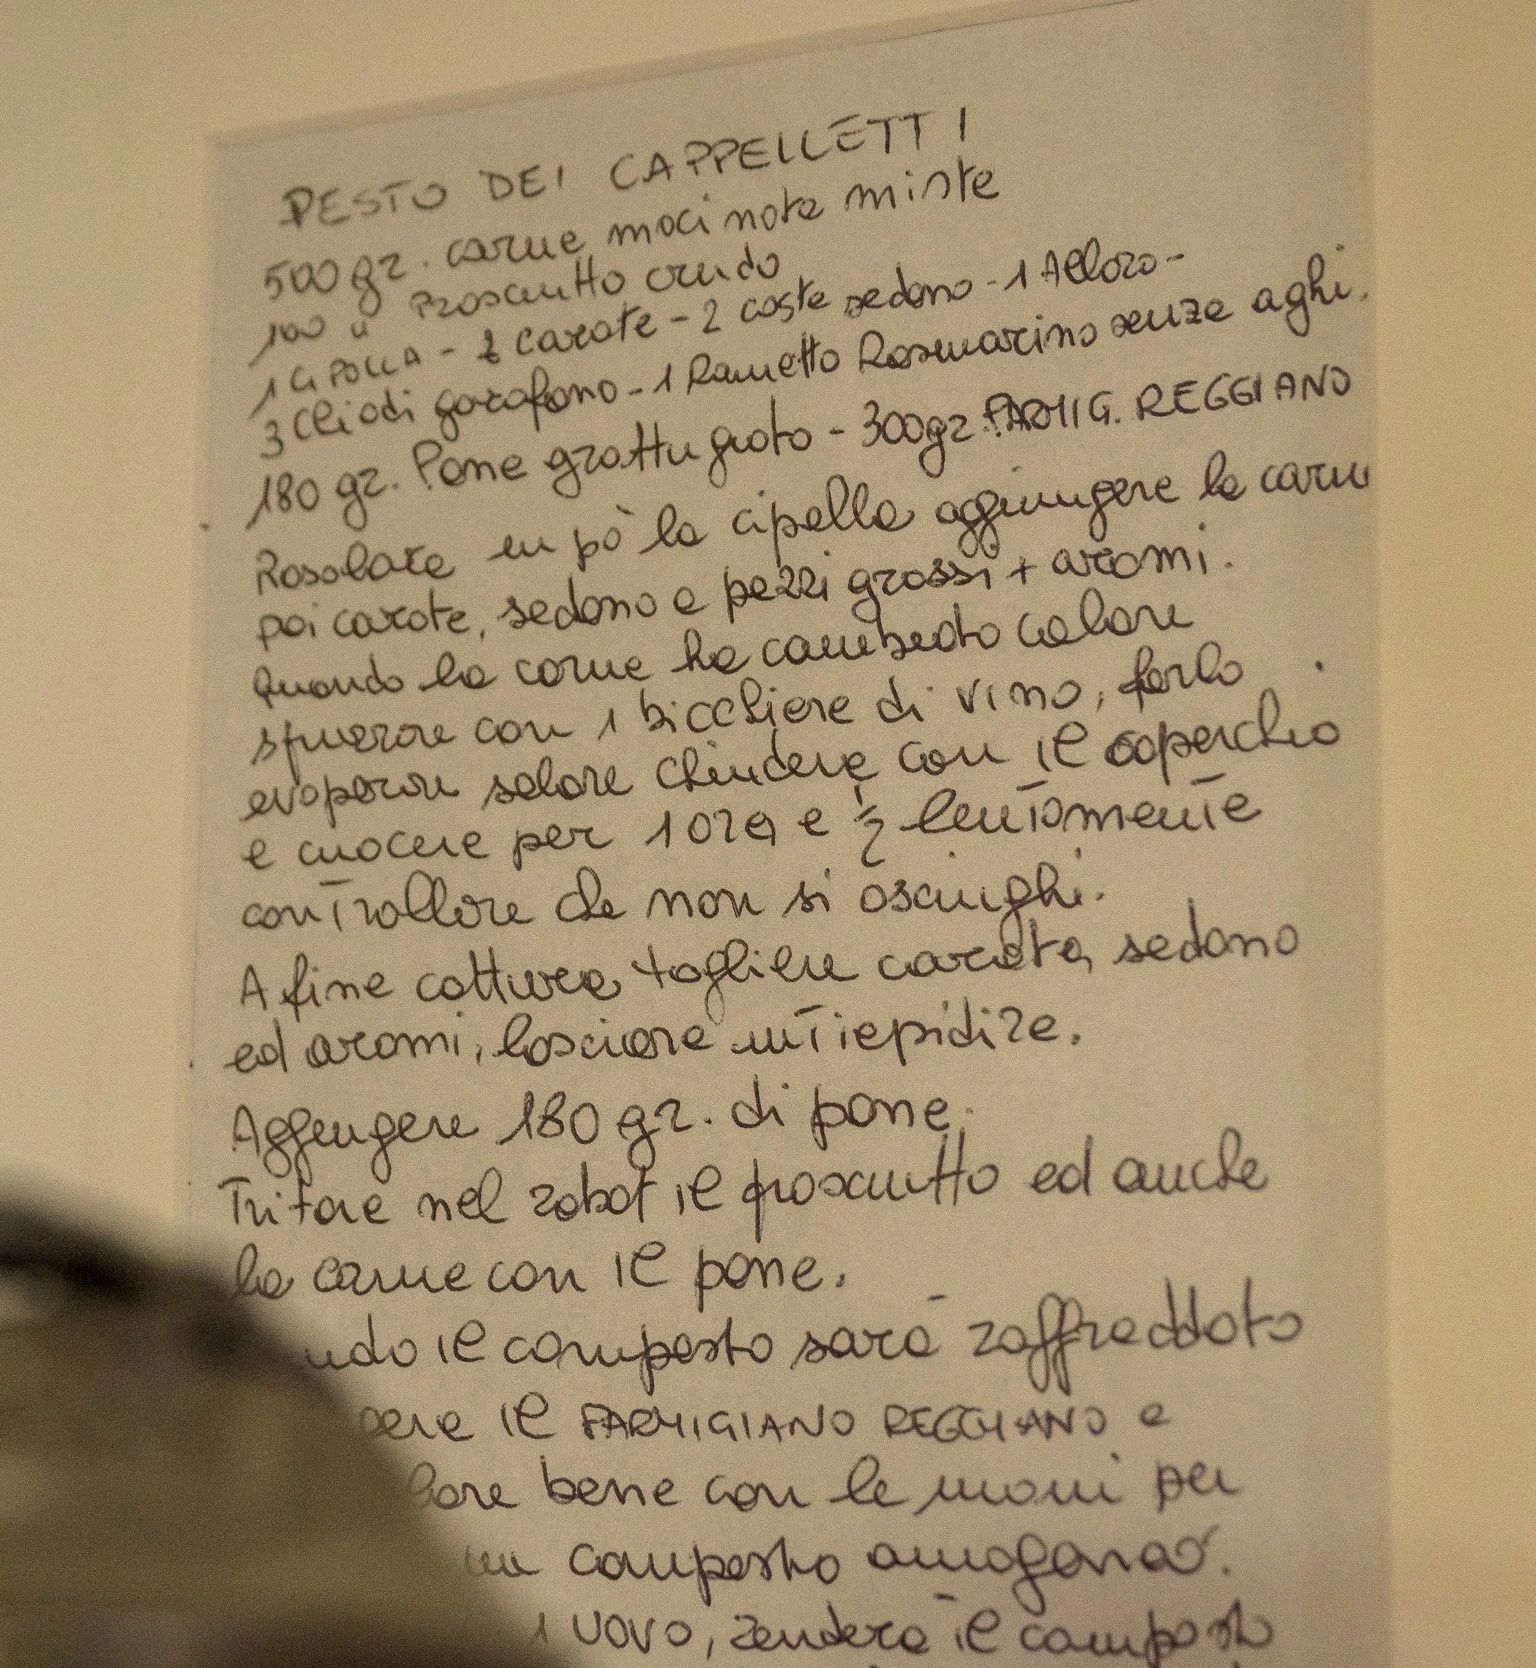 PESTO DEI CAPPELLETTI
500 gr. carne macinata miste
100 " Prosciutto crudo
1 CIPOLLA - 2 carote - 2 coste sedano - 1 Alloro -
3 chiodi garofano - 1 Rametto Rosmarino senza aghi.
180 gr. Pane grattugiato - 300gr. PARMIG. REGGIANO
Rosolare un pò la cipolla aggiungere la carne
poi carote, sedano a pezzi grossi + aromi.
Quando la carne ha cambiato colore
sfumare con 1 bicchiere di vino, farlo
evaporare salare chiudere con il coperchio
e cuocere per 1 ora e ½ lentamente
controllare che non si asciughi.
A fine cottura togliere carota, sedano
ed aromi, lasciare intiepidire.
Aggiungere 180 gr. di pane.
Tritare nel robot il prosciutto ed anche
la carne con il pane.
ndo il composto sarà raffreddato
gere il PARMIGIANO REGGIANO e
bene con le mani per
un composto omogeneo.
1 UOVO, renderà il composto